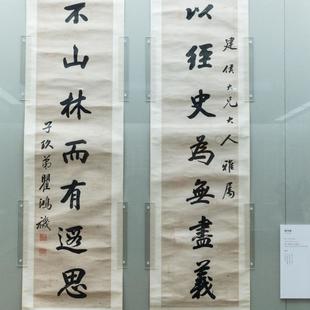 以經史為無盡義
建侯大兄大人雅屬
不山林而有遐思
子玖弟瞿鴻禨